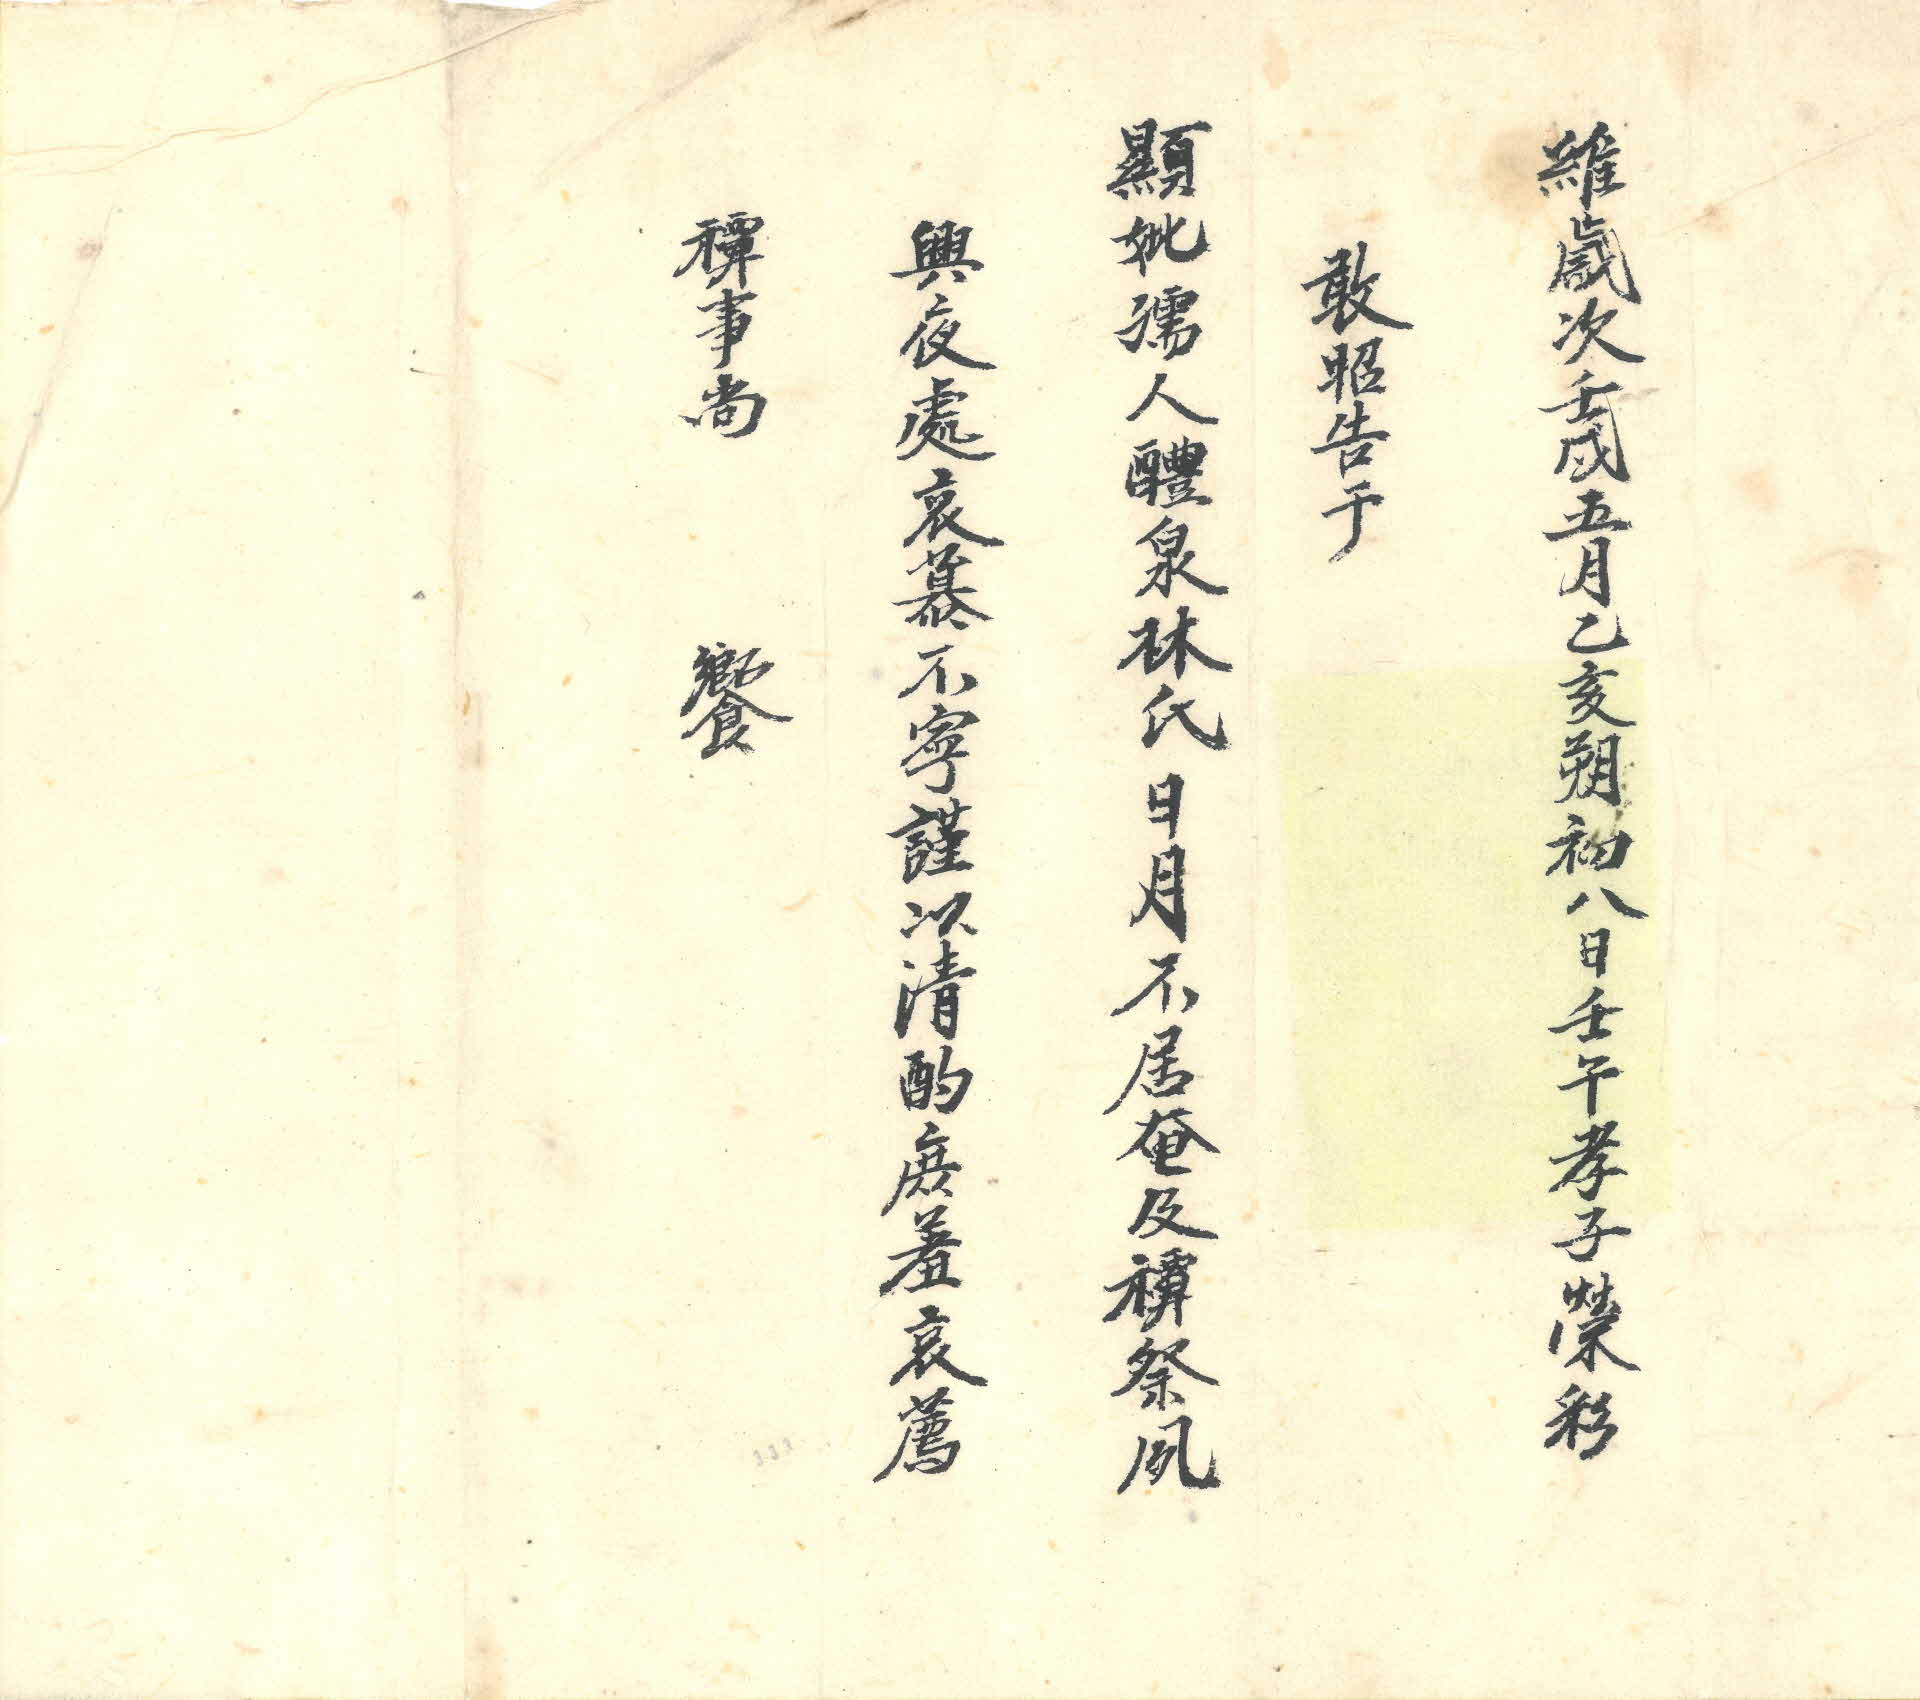 維歲次壬戌五月乙亥朔初八日壬午孝子榮彩
敢昭告于
顯妣孺人醴泉林氏日月不居奄及禫祭夙
興夜處哀慕不寧謹以清酌庶羞哀薦
禫事尚　饗